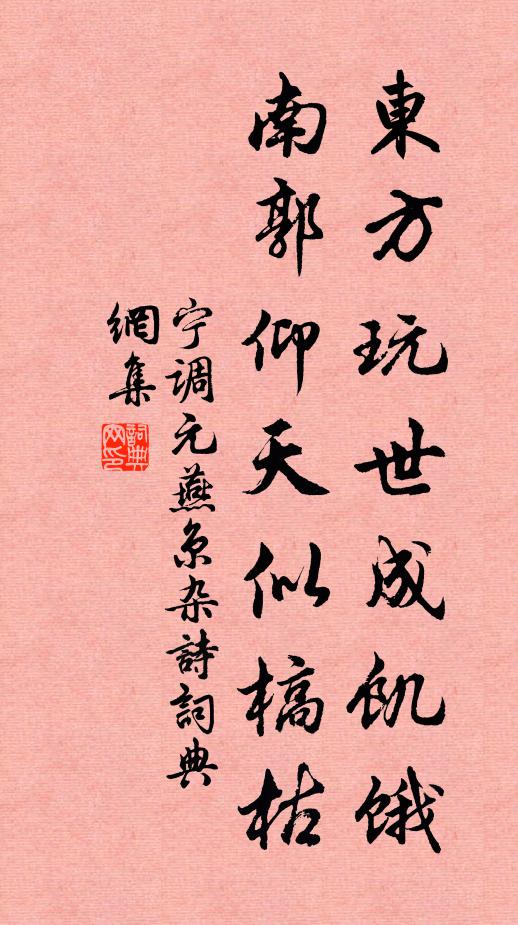 東方玩世成飢餓
南郭仰天似槁枯
宁调元燕京杂詩詞典
網集
詞典
网印